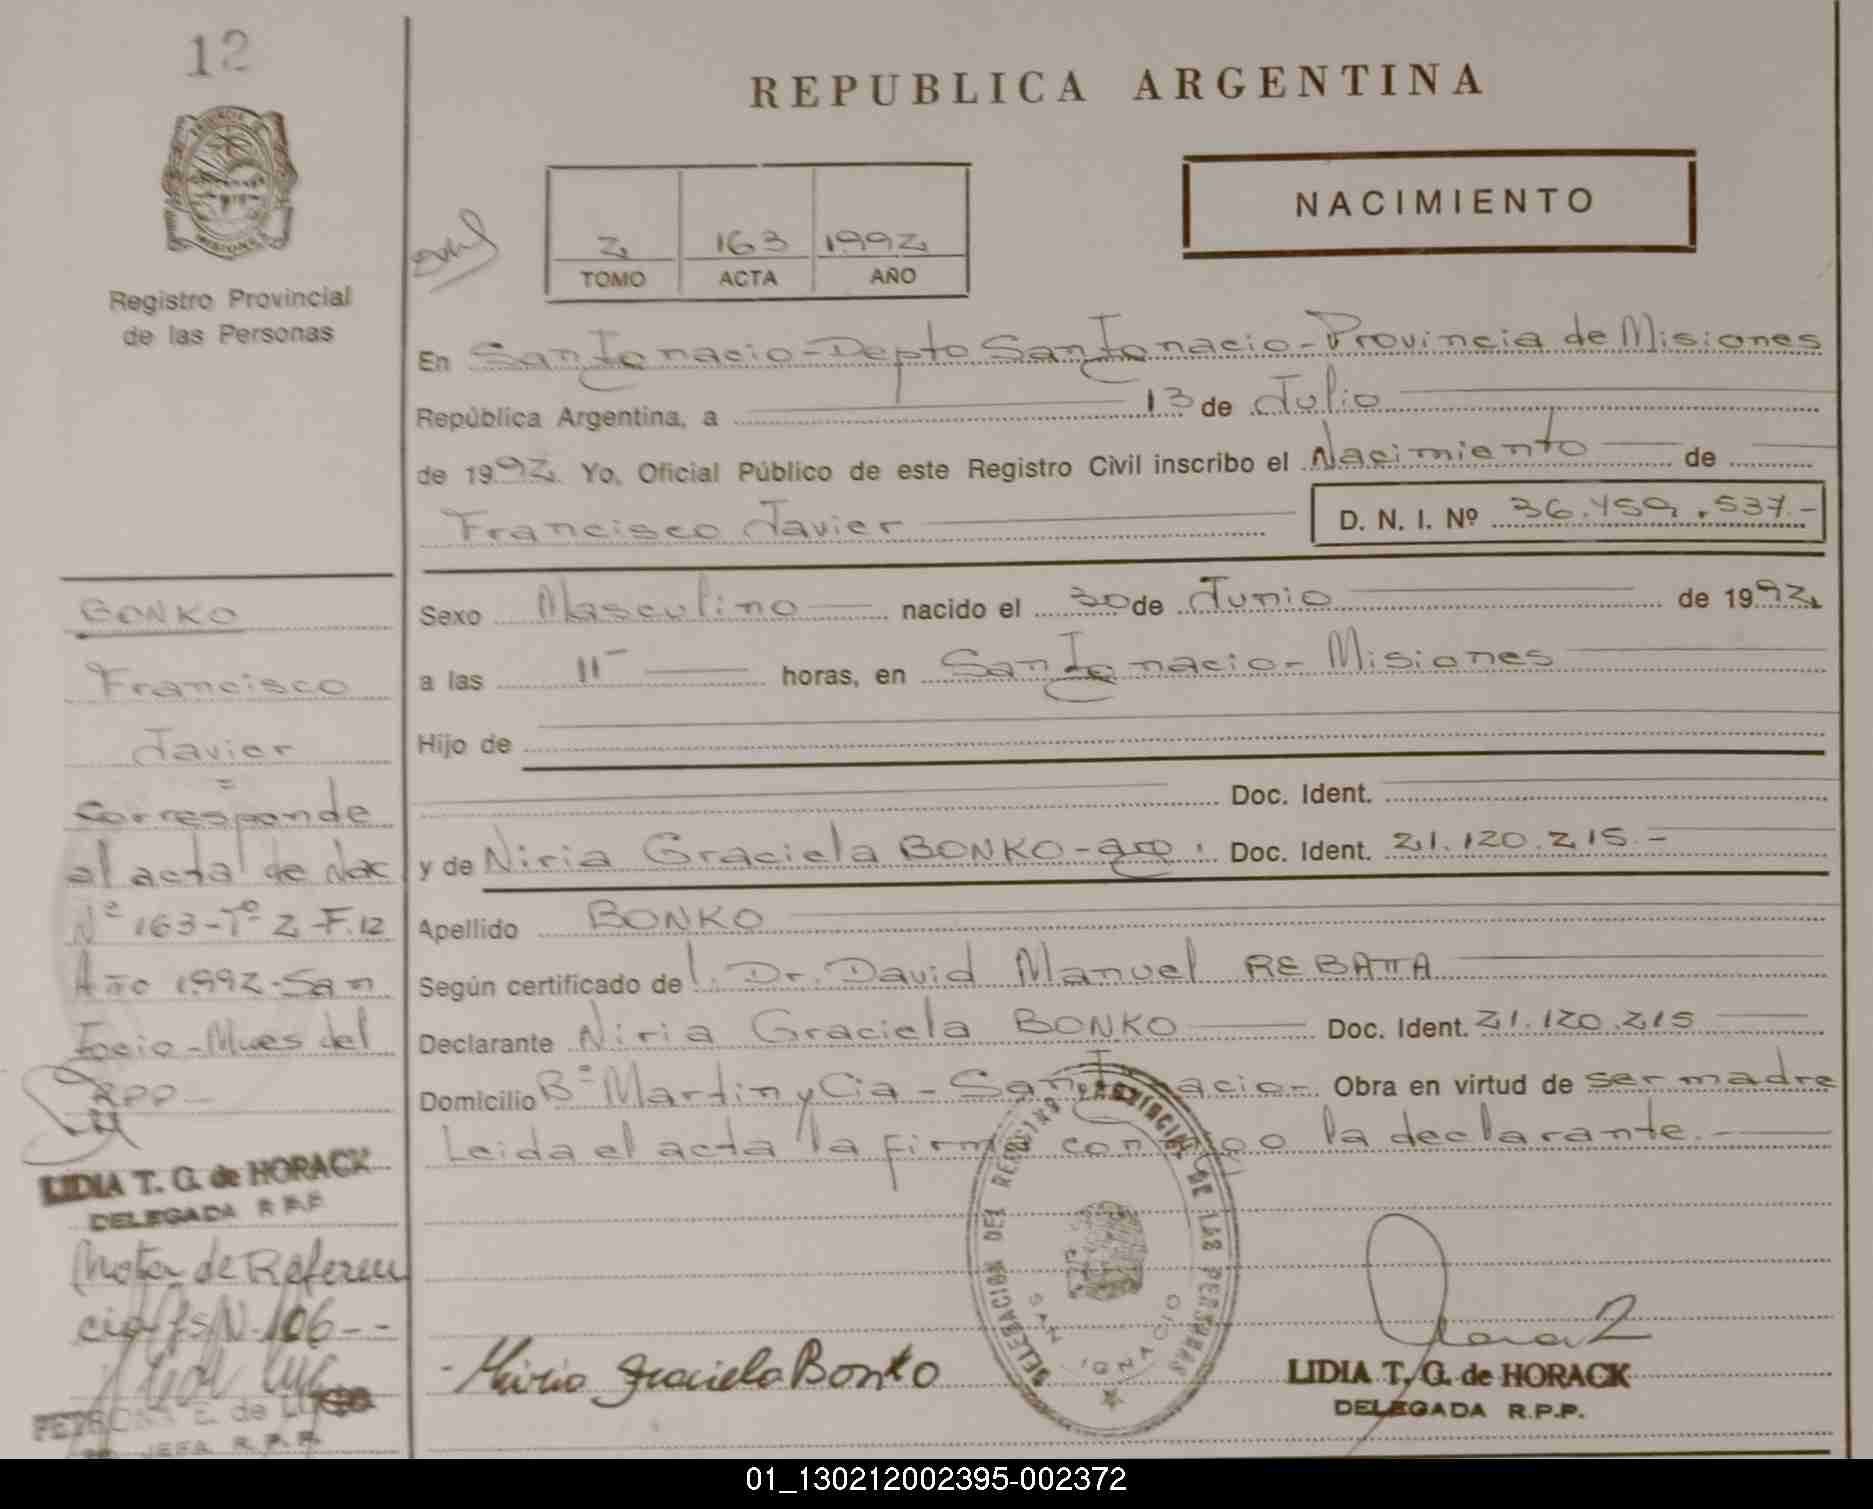 12
REPUBLICA ARGENTINA
NACIMIENTO
2 163 1992
TOMO ACTA AÑO
Registro Provincial
de las Personas
En San Ignacio-Depto San Ignacio-Provincia de Misiones
República Argentina, a 13 de Julio
de 1992. Yo, Oficial Público de este Registro Civil inscribo el Nacimiento de
Francisco Javier
D. N. I. Nº 36.459.537.-
BONKO
Francisco
Javier
Corresponde
al acta de Nac
Nº 163-Tº 2-F.12
Año 1992-San
Igcio-Mnes del
RPP-
LIDIA T. G. de HORACK
DELEGADA R.P.P.
Nota de Referen
cia fs N-106--
PETRONA E. de
JEFA R.P.P.
Sexo Masculino nacido el 30 de Junio de 1992
a las 11 horas, en San Ignacio- Misiones
Hijo de
Doc. Ident.
y de Niria Graciela BONKO-arg. Doc. Ident. 21.120.215.-
Apellido BONKO
Según certificado de l. Dr. David Manuel REBATTA
Declarante Niria Graciela BONKO Doc. Ident. 21.120.215
Domicilio Bº Martin y Cia - San Ignacio- Obra en virtud de ser madre
Leida el acta la firma conmigo la declarante.-
DELEGACION DEL REGISTRO PROVINCIAL DE LAS PERSONAS
SAN IGNACIO
Niria Graciela Bonko
LIDIA T. G. de HORACK
DELEGADA R.P.P.
01_130212002395-002372